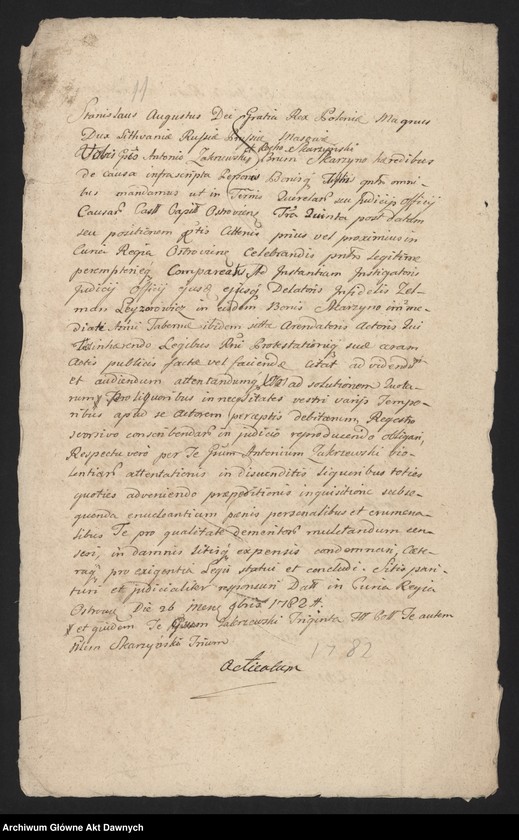 11
Stanislaus Augustus Dei Gratia Rex Poloniæ Magnus
Dux Lithvaniæ Russiæ Prussiæ Masoviæ
et Skarzyński
Vobis Antonio Zakrzewski Skarzyno hæredibus
de causa infrascripta Bonisq omni-
bus mandamus ut in Terris Querelar seu Judicij officij
Causar Castr Capit Ostroviens Quinta post datam
seu positionem Citienis prius vel proximius in
Curia Regia Ostroviae Celebrandis legitime
peremptorieq Compareatis Ad Instantiam Instigatoris
Judicij officij ejusq Delatoris Infidelis Zel-
man Leyzorowicz in eisdem Bonis Skarzyno imme-
diate Tabernæ ibidem sittæ Arendatoris Actoris Qui
inhærendo Legibus Rni Protestationiq suæ coram
Actis publicis factæ vel faciendæ citat ad videndu
et audiendum attentandumq ad solutionem Quota-
rum pro liquoribus in necessitates vestri varijs Tempo-
ribus apud se Actorem peraptis debitarum Regestro
servivo conscribendar in judicio reproducendo obligari,
Respectu vero per Te Antonium Zakrzewski vio-
lentiar attentationis in disvenditis liquoribus toties
quoties adveniendo præpeditionis inquisitione subse-
quenda enucleantium pænis personalibus et crumena-
libus Te pro qualitate demeritor mulctandum cen-
seri, in damnis litisq expensis condemnari, Cæte-
raq pro exigentia Legis statui et concludi. Sitis pari-
turi et judicialiter responsuri Datt in Curia Regia
Ostroviæ Die 26 Mens 9bris 1782 A.
et quidem Te Zakrzewski Triginta Te autem
Skarzyński Trium
Acticatum
1782
Archiwum Główne Akt Dawnych